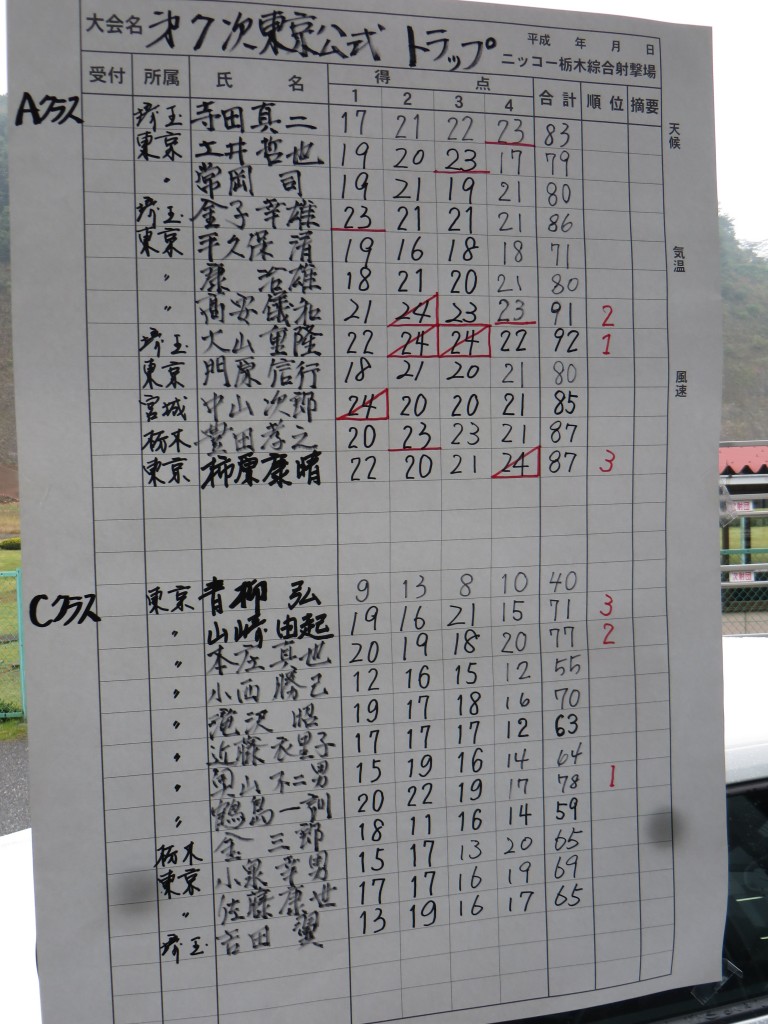 大会名 オ7次東京公式 トラップ 平成 年 月 日
ニッコー栃木綜合射撃場
受付 所属 氏 名 得 点 合計 順位 摘要
1 2 3 4
天候
気温
風速
Aクラス 埼玉 寺田真二 17 21 22 23 83
東京 土井哲也 19 20 23 17 79
〃 常岡 司 19 21 19 21 80
埼玉 金子幸雄 23 21 21 21 86
東京 平久保 清 19 16 18 18 71
〃 治雄 18 21 20 21 80
〃 高安儀和 21 24 23 23 91 2
埼玉 大山重隆 22 24 24 22 92 1
東京 門原信行 18 21 20 21 80
宮城 中山次郎 24 20 20 21 85
栃木 豊田孝之 20 23 23 21 87
東京 柿原康晴 22 20 21 24 87 3
Cクラス 東京 青柳 弘 9 13 8 10 40
〃 山崎由起 19 16 21 15 71 3
〃 本庄真也 20 19 18 20 77 2
〃 小西勝己 12 16 15 12 55
〃 滝沢 昭 19 17 18 16 70
〃 近藤衣里子 17 17 17 12 63
〃 山不二男 15 19 16 14 64
〃 鶴島一訓 20 22 19 17 78 1
栃木 金 三郎 18 11 16 14 59
東京 小泉幸男 15 17 13 20 65
〃 佐藤康世 17 17 16 19 69
埼玉 吉田 翼 13 19 16 17 65